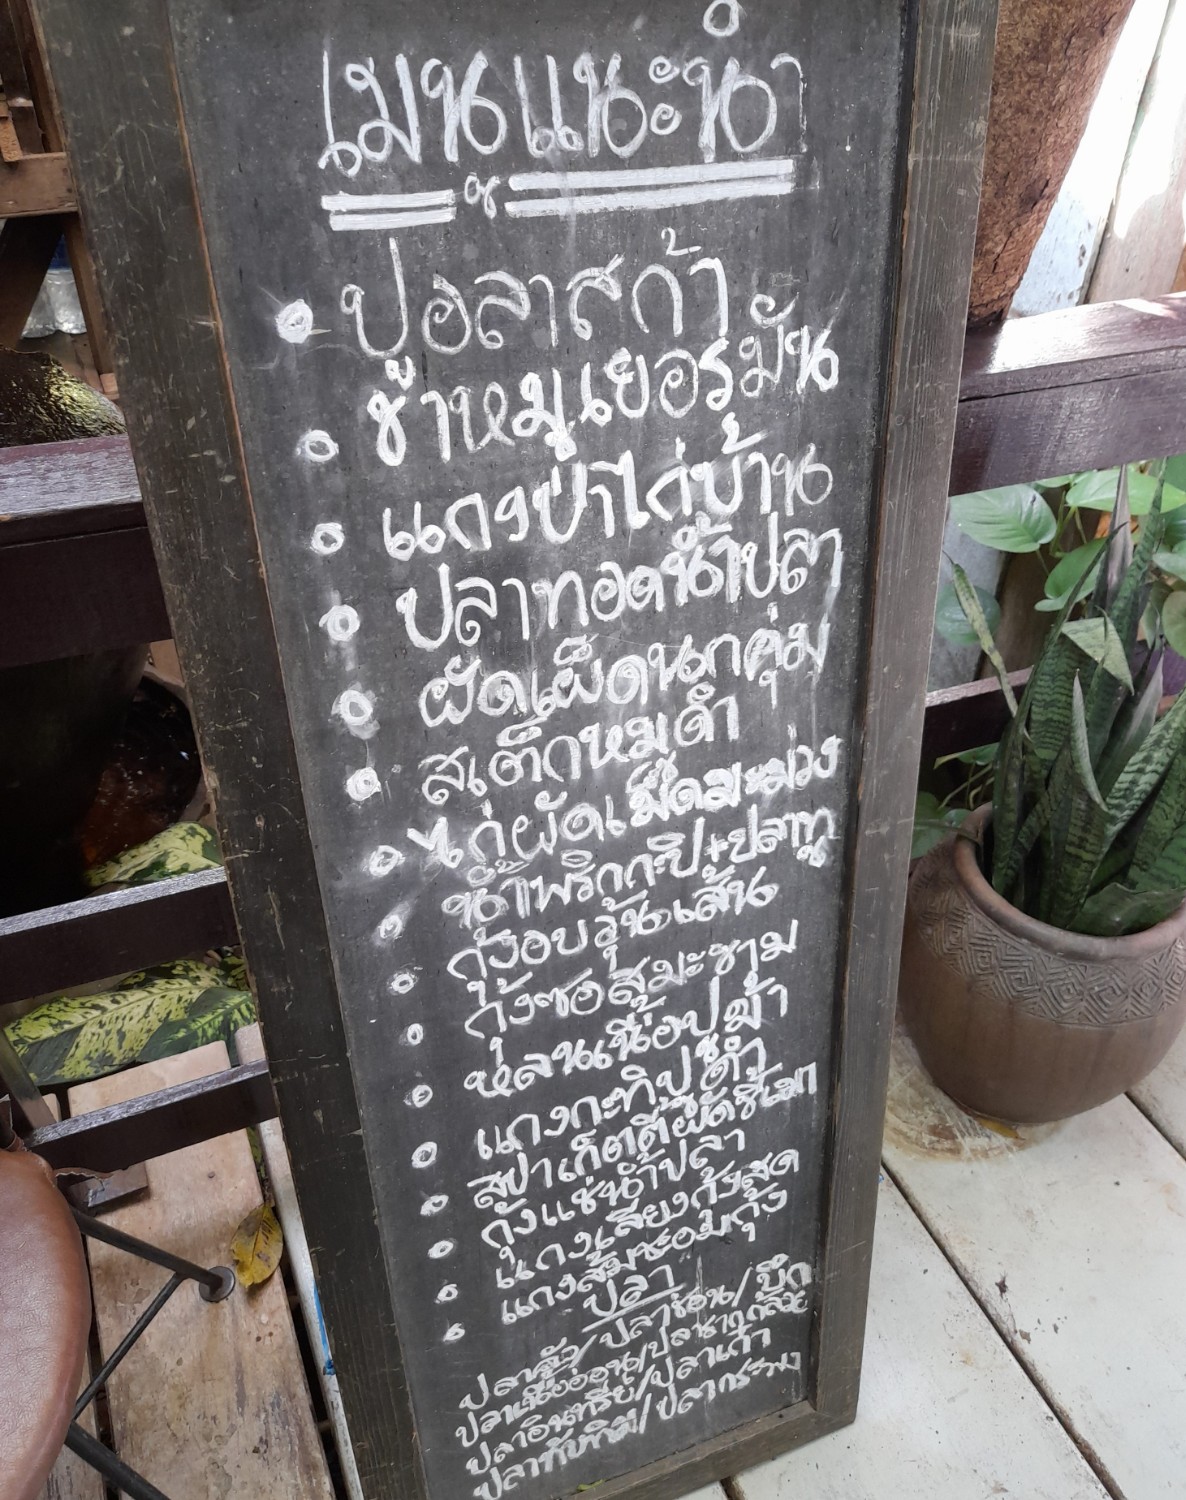 เมนูแนะนำ
ปูอลาสก้า
ขาหมูเยอรมัน
แกงป่าไก่บ้าน
ปลาทอดน้ำปลา
ผัดเผ็ดนกคุ่ม
สเต็กหมูดำ
ไก่ผัดเม็ดมะม่วง
น้ำพริกกะปิ+ปลาทู
กุ้งอบวุ้นเส้น
กุ้งซอสมะขาม
หลนเนื้อปูม้า
แกงกะทิปูดำ
สปาเก็ตตี้ผัดขี้เมา
กุ้งแช่น้ำปลา
แกงเลียงกุ้งสด
แกงส้มชะอมกุ้ง
ปลา
ปลาคัง/ปลาช่อน/บึก
ปลาเนื้ออ่อน/ปลาคางเบือน
ปลาอินทรีย์/ปลาเก๋า
ปลาทับทิม/ปลากระพง